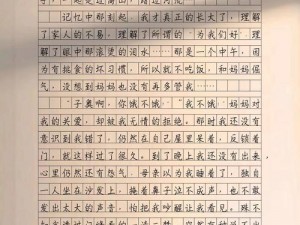 记忆中那刻起，我才真正的长大了，理解
了家人的不易，理解了所谓的“为我们好”理
解了眼中那滚烫的泪水……那是一个中午，因
为有挑食的坏习惯，所以就不吃饭，和妈妈怄
气，没想到妈妈也没有再多管我……
“子奥啊，你饿不饿”“我不饿”妈妈对
我的关爱，却被我无情的拒绝。那时我还没有
意识到我错了，仍然在自己屋里呆着，反锁着
门，就这样过了很久。到了晚上我还没有出来
心里仍然还有怨气。母亲以为我睡着了，独自
一人坐在沙发上，掩着鼻子泣不成声，也不敢
发出太大的声音，怕把我吵醒让我看见。殊不